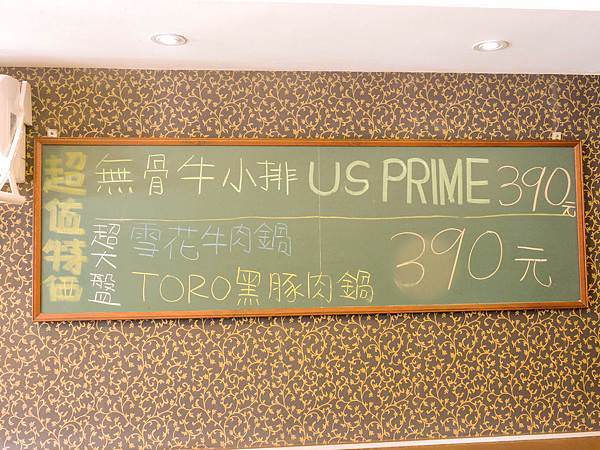 超值特価
無骨牛小排 US PRIME 390元
超大盤
雪花牛肉鍋
TORO黑豚肉鍋
390元